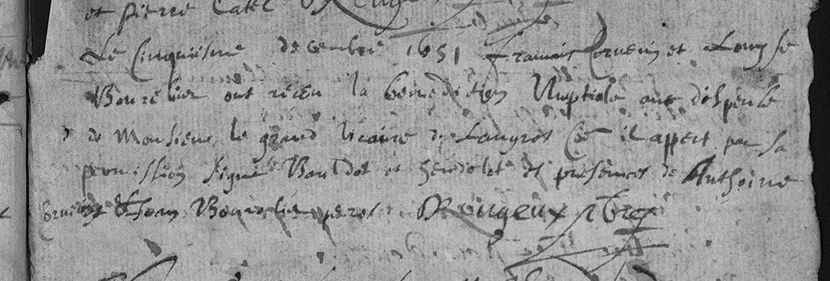 et pierre Catel
Le Cinquiesme decembre 1651 francois Cornevin et Louyse
Bourelier ont receu la benediction Nuptiale avec dispense
de Monsieur le grand vicaire de Langres Co͠e il appert par sa
permission signé Bauldot et Gendelot et presences de Anthoine
Cornevin & Jean Bourelier peres Rougeux pbre